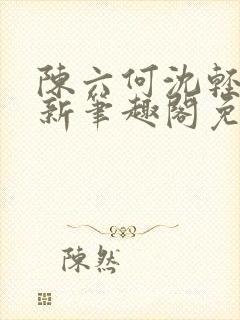 陳六何沈輕
新筆趣閣免
陳然